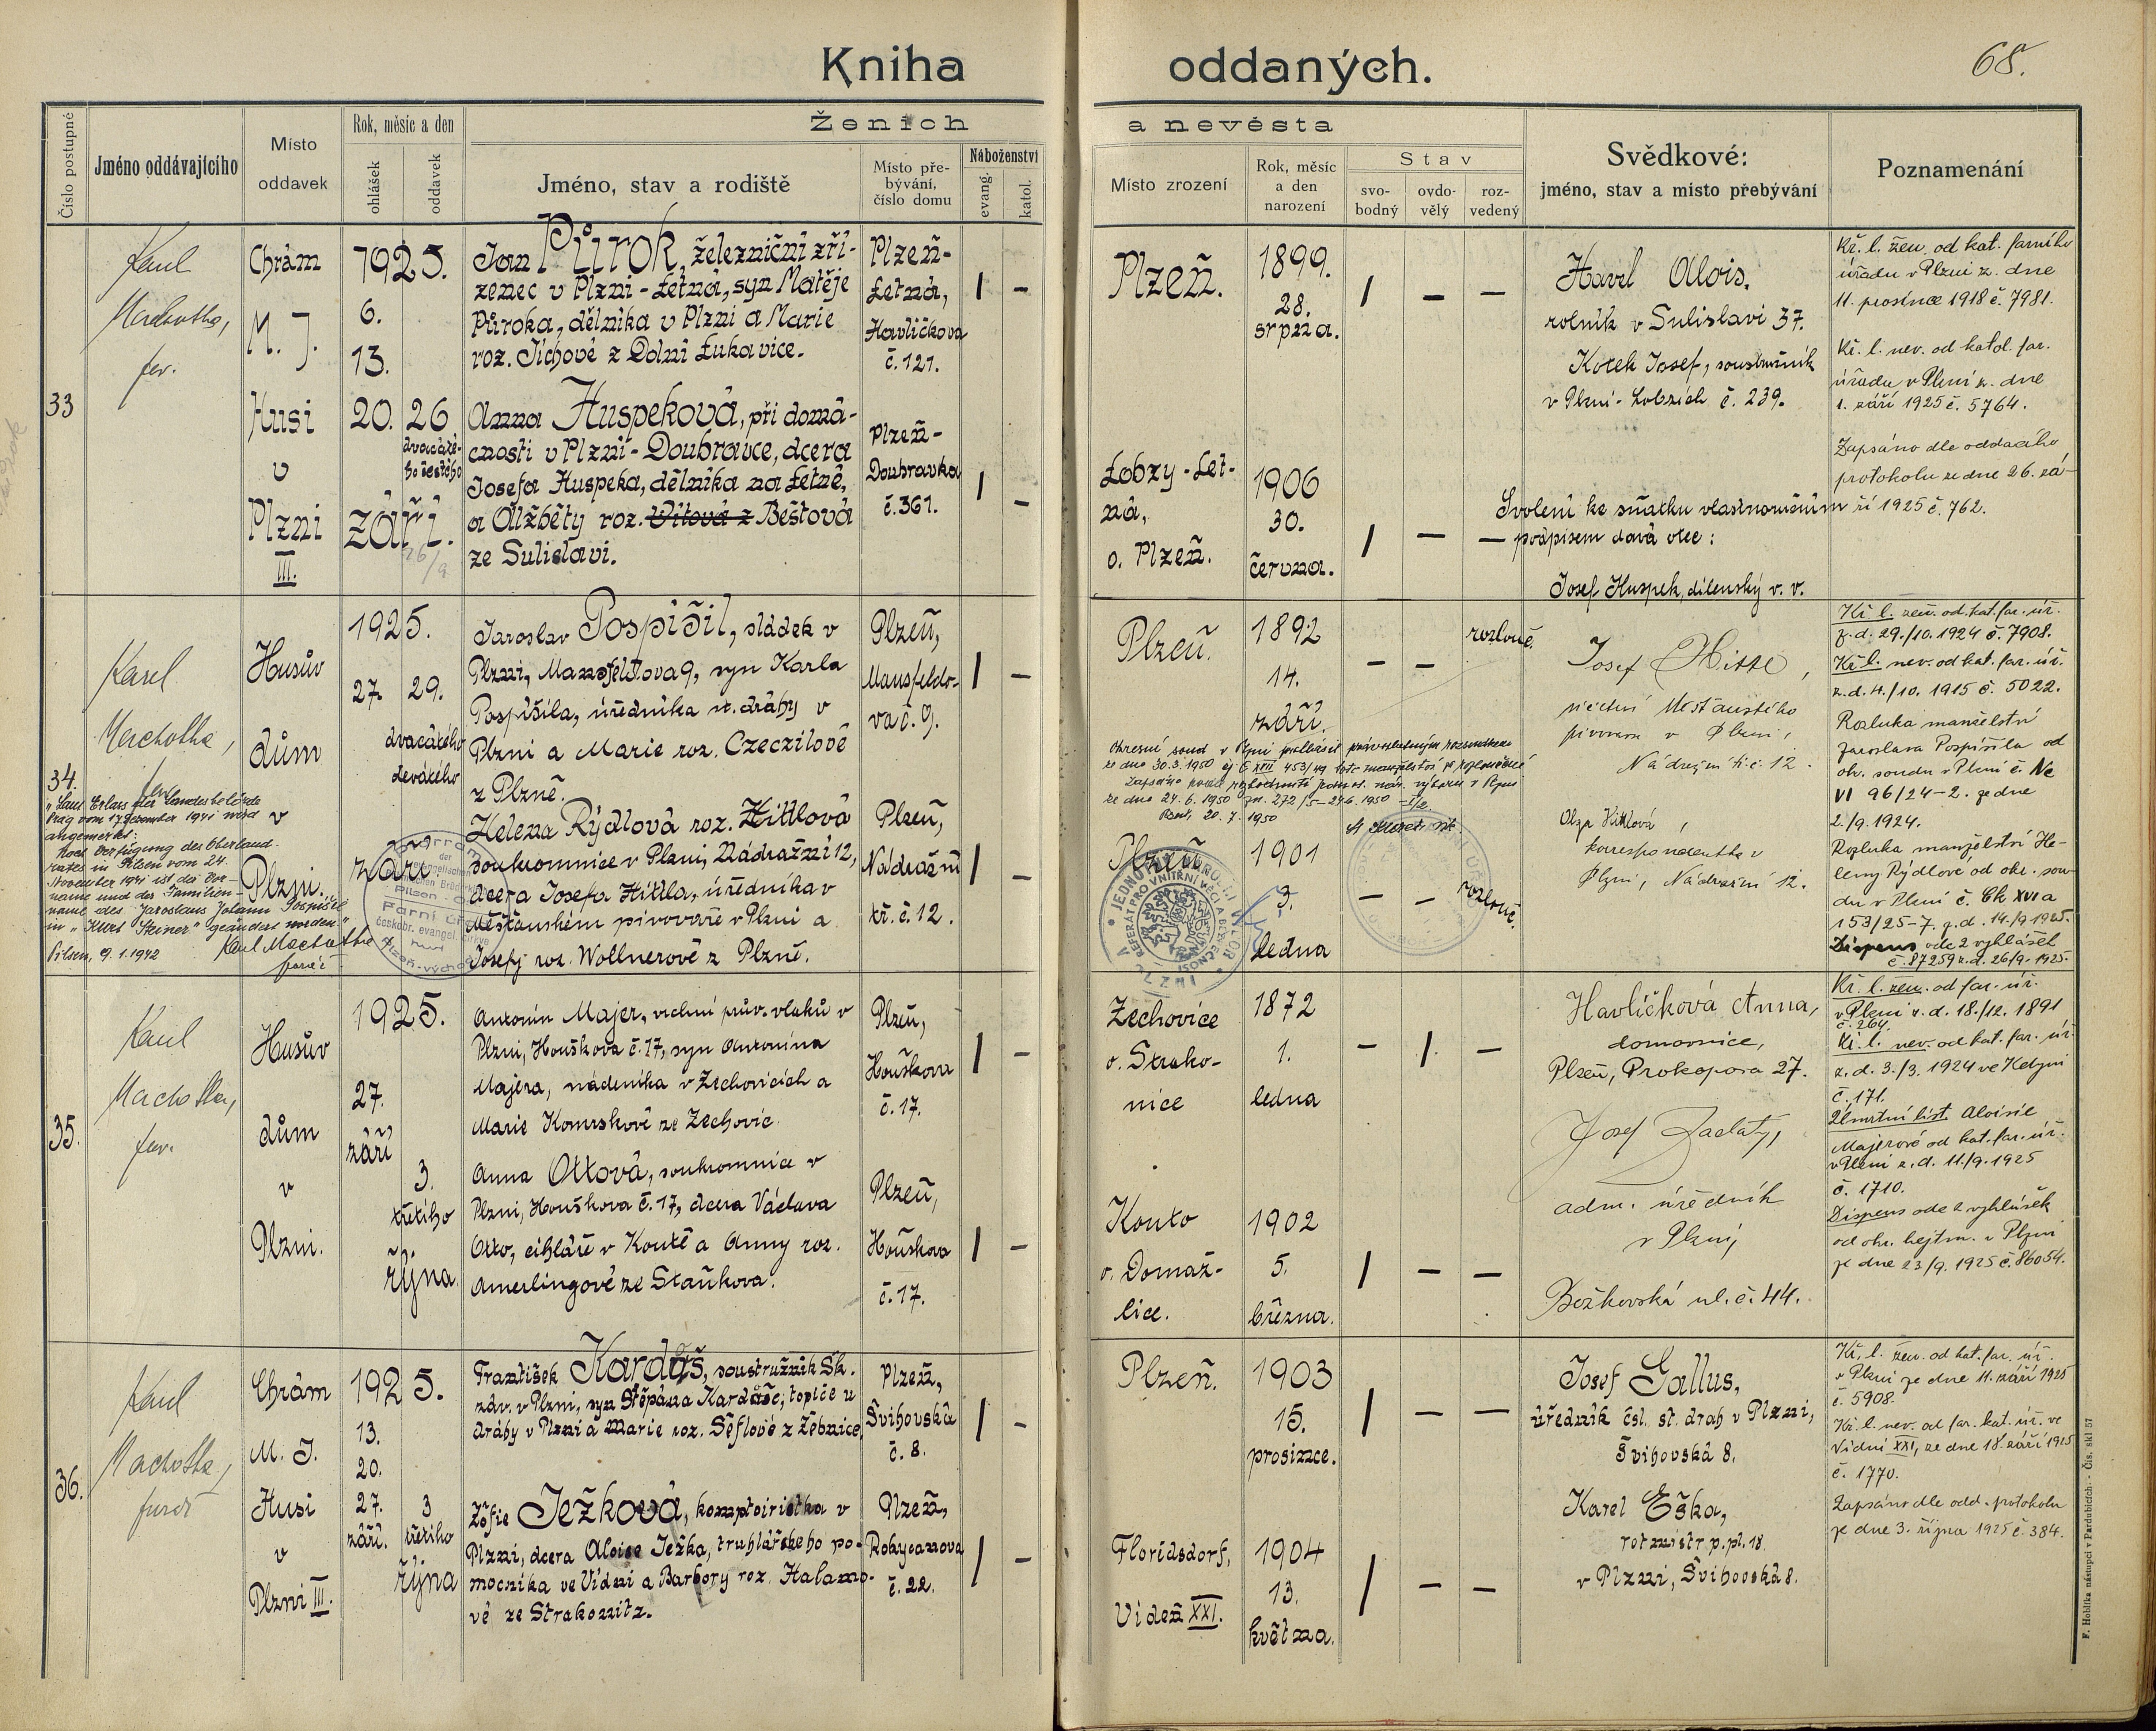 Kniha oddaných.
68.
Číslo postupné
Jméno oddávajícího
Místo
oddavek
Rok, měsíc a den
ohlášek
oddavek
Ženich
a nevěsta
Jméno, stav a rodiště
Místo pře-
bývání,
číslo domu
Náboženství
evang.
katol.
Místo zrození
Rok, měsíc
a den
narození
Stav
svo-
bodný
ovdo-
vělý
roz-
vedený
Svědkové:
jméno, stav a místo přebývání
Poznamenání
33
Karel
Machotka,
far.
Chrám
M. J.
Husi
v
Plzni
III.
1925.
6.
13.
20. 26
dvacáté-
ho šestého
září.
26/9
Jan Půrok, železniční zří-
zenec v Plzni-Letná, syn Matěje
Půroka, dělníka v Plzni a Marie
roz. Jíchové z Dolní Lukavice.
Plzeň-
Letná,
Havlíčkova
č. 121.
/ –
Anna Huspeková, při domá-
cnosti v Plzni-Doubravce, dcera
Josefa Huspeka, dělníka na Letné,
a Alžběty roz. Vítová z Beštová
ze Sulislavi.
Plzeň-
Doubravka
č. 361.
/ –
Plzeň.
1899.
28.
srpna.
/ – –
Lobzy-Let-
ná,
o. Plzeň.
1906
30.
června.
/ – –
Havel Alois,
rolník v Sulislavi 37.
Kotek Josef, soustružník
v Plzni-Lobzích č. 239.
Svolení ke sňatku vlastnoručním
podpisem dává otec:
Josef Huspek, dílenský v. v.
Kř. l. žen. od kat. farního
úřadu v Plzni z. dne
11. prosince 1918 č. 7981.
Kř. l. nev. od katol. far.
úřadu v Plzni z. dne
1. září 1925 č. 5764.
Zapsáno dle oddacího
protokolu ze dne 26. zá-
ří 1925 č. 762.
34.
Karel
Machotka,
far.
Husův
dům
v
Plzni.
1925.
27. 29.
dvacátého
devátého
září.
Jaroslav Pospíšil, sládek v
Plzni, Mansfeldova 9, syn Karla
Pospíšila, úředníka st. dráhy v
Plzni a Marie roz. Czeczilové
z Plzně.
Plzeň,
Mansfeldo-
va č. 9.
/ –
Helena Rýdlová roz. Hittlová
soukromnice v Plzni, Nádražní 12,
dcera Josefa Hittla, úředníka v
Měšťanském pivovaře v Plzni a
Josefy roz. Wollnerové z Plzně.
Plzeň,
Nádražní
tř. č. 12.
/ –
"Laut Erlass der Landesbehörde
Prag vom 17. Dezember 1941 wird
angemerkt:
Nach Verfügung des Oberland-
rates in Pilsen vom 24.
November 1941 ist der Vor-
name und der Familien-
name des Jaroslaus Johann Pospíšil
in "Kurt Steiner" geändert worden."
Pilsen, 9. 1. 1942 Karel Machotka
farář
Pfarramt
der
Pilsen-
Farní úřad
českobr. evangel. církve
Plzeň-východ
Plzeň.
1892
14.
září.
– – rozlouč.
Okresní soud v Plzni prohlásil pravoplatným rozsudkem
ze dne 30.3.1950 čj C XVII 453/49 toto manželství za rozloučené
ze dne 24. 6. 1950 zn. 272/5–24.6.1950
20. 7. 1950
Plzeň
1901
3.
ledna
– – rozlouč.
REFERÁT PRO VNITŘNÍ VĚCI A BEZPEČNOST
Josef Hittl,
úředník Měšťanského
pivovaru v Plzni,
Nádražní tř. č. 12.
Olga Hittlová,
korrespondentka v
Plzni, Nádražní 12.
Kř. l. žen. od. kat. far. úř.
z. d. 29./10. 1924 č. 7908.
Kř. l. nev. od kat. far. úř.
z. d. 4./10. 1915 č. 5022.
Rozluka manželství
Jaroslava Pospíšila od
okr. soudu v Plzni č. Nc
VI 96/24–2. ze dne
2./9. 1924.
Rozluka manželství He-
leny Rýdlové, od okr. sou-
du v Plzni č. Ck XVI a
153/25–7. z. d. 14./9. 1925.
Dispens ode 2 vyhlášek
č. 87259 z. d. 26/9. 1925.
35.
Karel
Machotka,
far.
Husův
dům
v
Plzni.
1925.
27.
září
3.
třetího
října.
Antonín Majer, vrchní prův. vlaků v
Plzni, Houškova č. 17, syn Antonína
Majera, nádeníka v Zechovicích a
Marie Komrskové ze Zechovic.
Plzeň,
Houškova
č. 17.
/ –
Anna Ottová, soukromnice v
Plzni, Houškova č. 17, dcera Václava
Otto, cihláře v Koutě a Anny roz.
Amerlingové ze Staňkova.
Plzeň,
Houškova
č. 17.
/ –
Zechovice
o. Strako-
nice
1872
1.
ledna
– / –
Kouto
o. Domaž-
lice.
1902
5.
března.
/ – –
Havlíčková Anna,
domovnice,
Plzeň, Prokopova 27.
Josef Zaclatý,
adm. úředník
v Plzni,
Božkovská ul. č. 44.
Kř. l. žen. od far. úř.
v Plzni z. d. 18./12. 1891
č. 264.
Kř. l. nev. od kat. far. úř.
z. d. 3./3. 1924 ve Kdyni
č. 171.
Úmrtní list Aloisie
Majerové od kat. far. úř.
v Plzni z. d. 11./9. 1925
č. 1710.
Dispens ode 2 vyhlášek
od okr. hejtm. v Plzni
ze dne 23/9. 1925 č. 86054.
36.
Karel
Machotka,
farář
Chrám
M. J.
Husi
v
Plzni III.
1925.
13.
20.
27.
září.
3
třetího
října
František Kardáš, soustružník Šk.
záv. v Plzni, syn Štěpána Kardáše, topiče u
dráhy v Plzni a Marie roz. Šéflové z Žebnice.
Plzeň,
Švihovská
č. 8.
/ –
Žofie Ježková, komptoiristka v
Plzni, dcera Aloise Ježka, truhlářského po-
mocníka ve Vídni a Barbory roz. Halamo-
vé ze Strakonitz.
Plzeň,
Rokycanova
č. 22.
/ –
Plzeň.
1903
15.
prosince.
/ – –
Floridsdorf,
Videň XXI.
1904
13.
května.
/ – –
Josef Gallus,
úředník čsl. st. drah v Plzni,
Švihovská 8.
Karel Eška,
rotmistr p. pl. 18.
v Plzni, Švihovská 8.
Kř. l. žen. od kat. far. úř.
v Plzni ze dne 11. září 1925
č. 5908.
Kř. l. nev. od far. kat. úř. ve
Vídni XXI, ze dne 18. září 1925
č. 1770.
Zapsáno dle odd. protokolu
ze dne 3. října 1925 č. 384.
F. Hoblíka nástupci v Pardubicích. - Čís. skl. 57